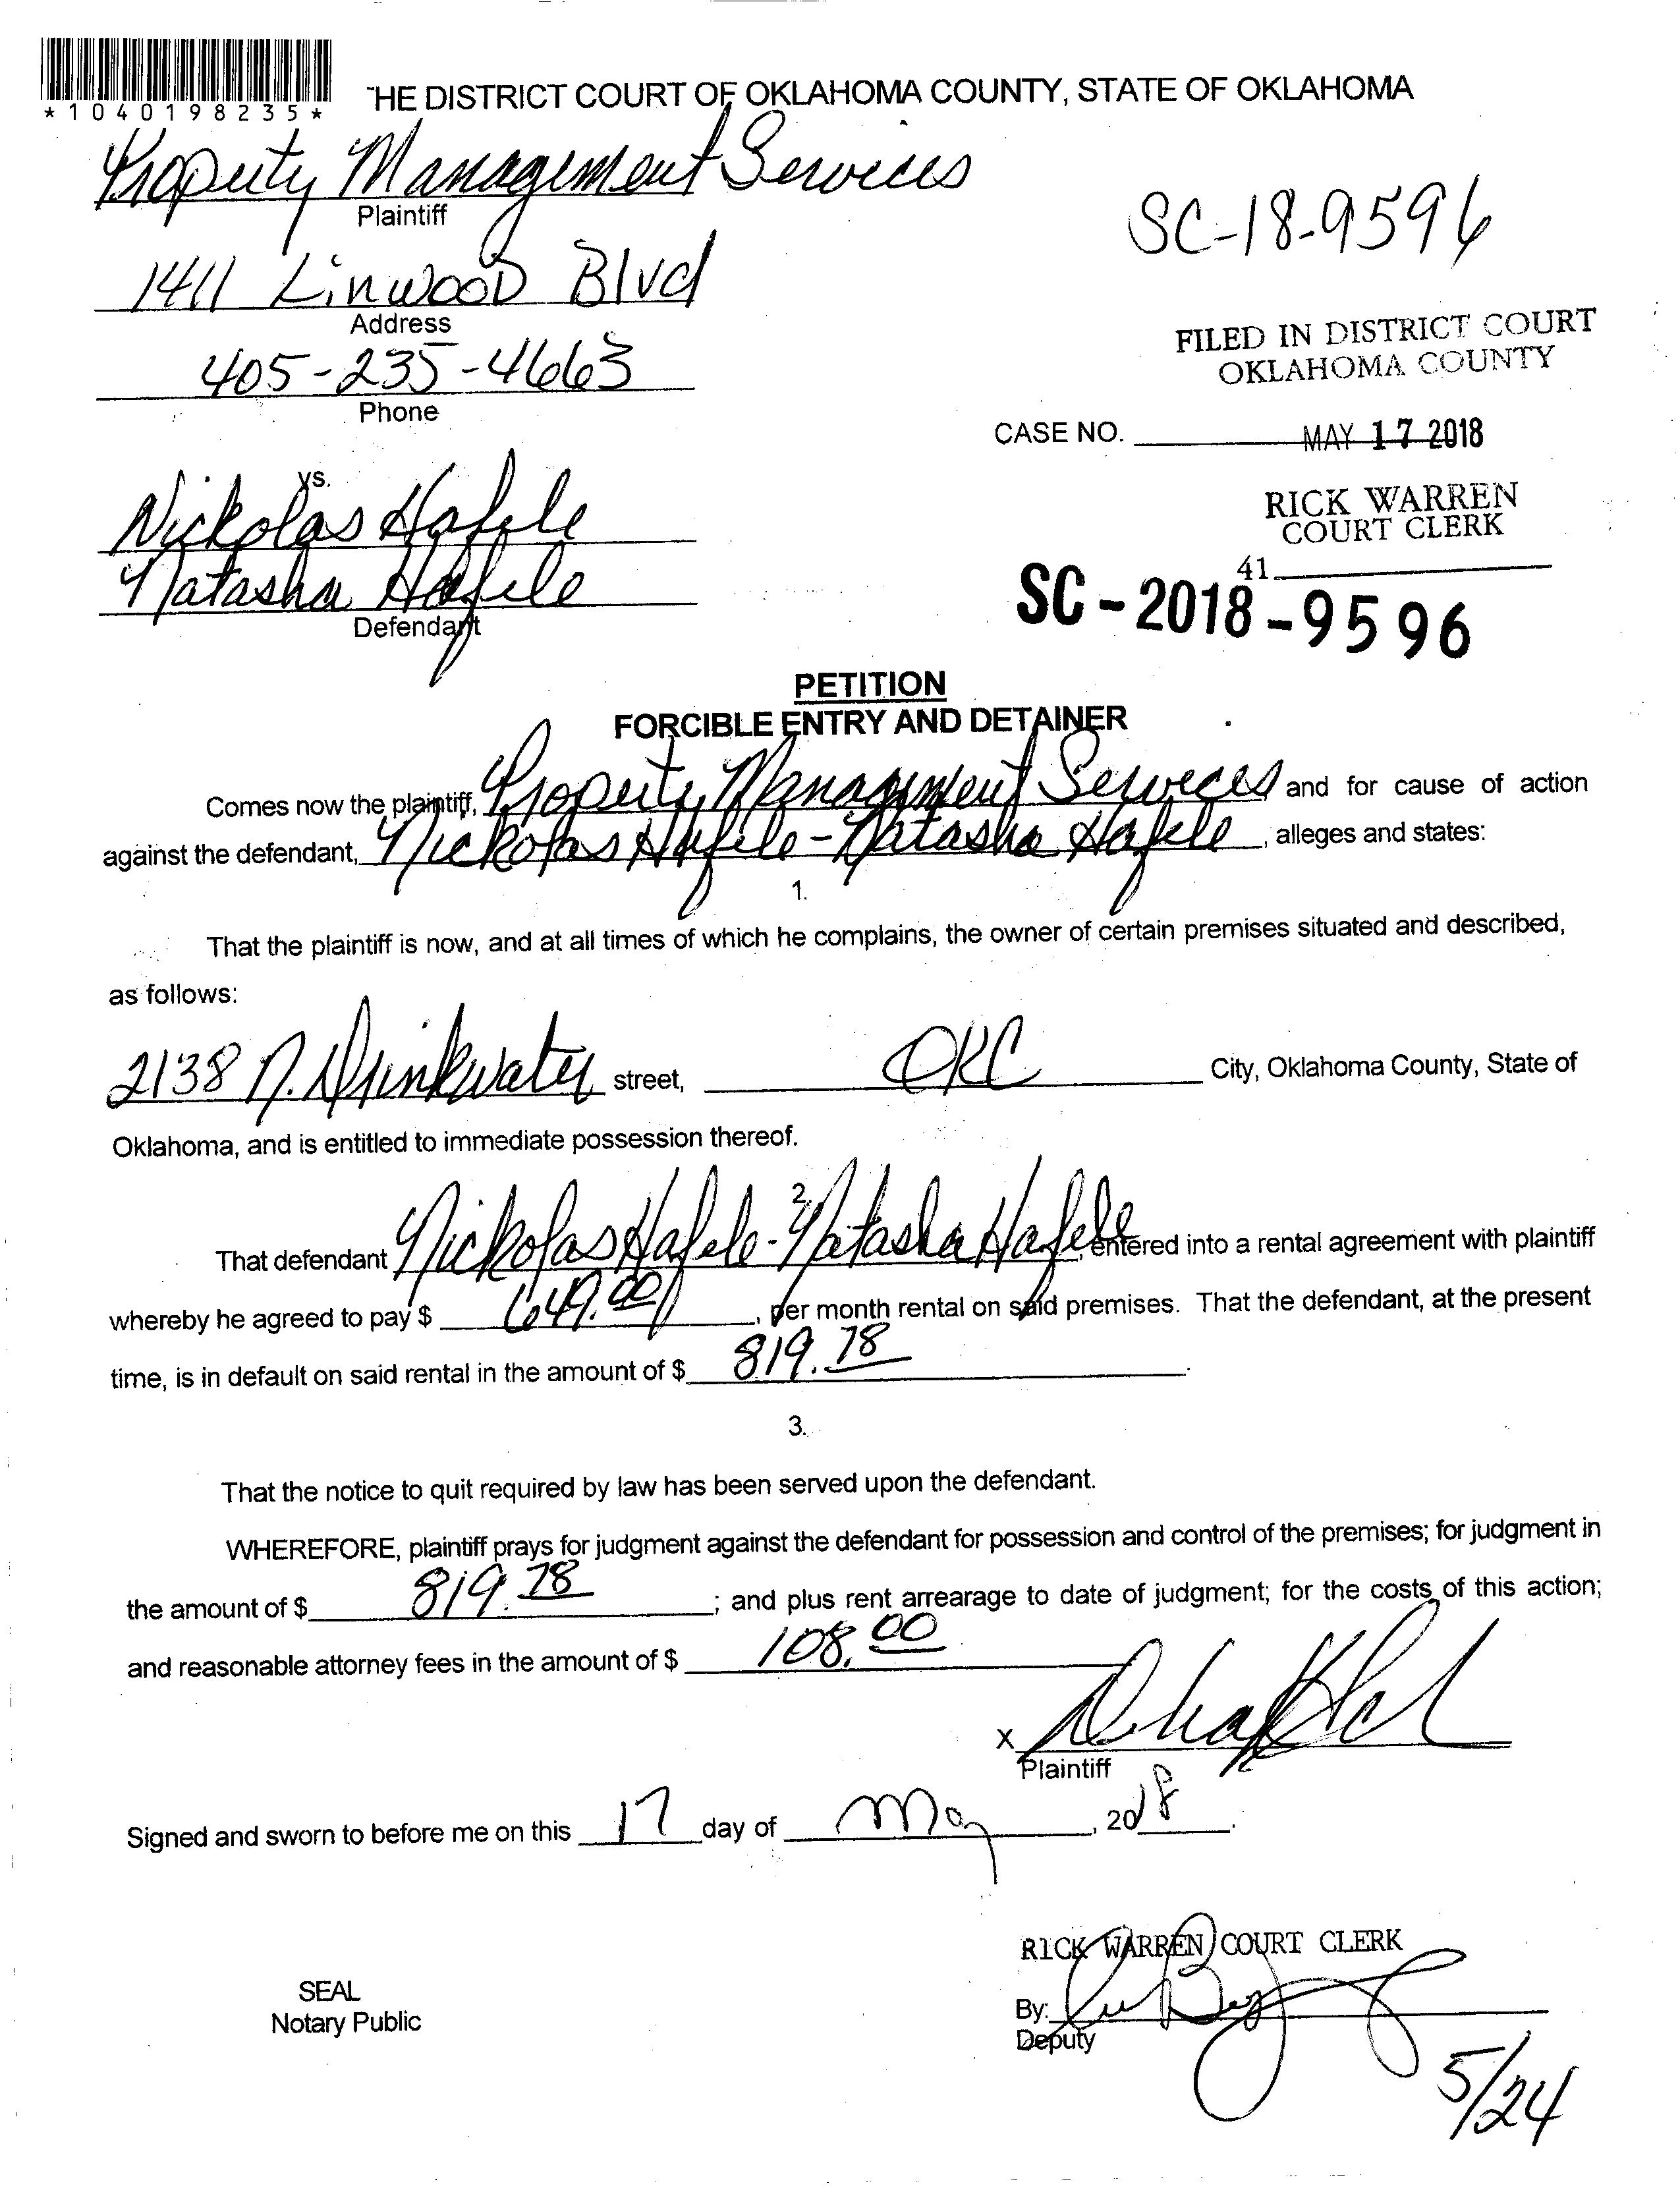 *1040198235*
THE DISTRICT COURT OF OKLAHOMA COUNTY, STATE OF OKLAHOMA
Property Management Services
Plaintiff
SC-18-9596
1411 Linwood Blvd
Address
FILED IN DISTRICT COURT
OKLAHOMA COUNTY
405-235-4663
Phone
CASE NO. MAY 17 2018
vs.
RICK WARREN
COURT CLERK
Nickolas Hafele
41
Natasha Hafele
Defendant
SC-2018-9596
PETITION
FORCIBLE ENTRY AND DETAINER
Comes now the plaintiff, Property Management Services and for cause of action
against the defendant, Nickolas Hafele - Natasha Hafele, alleges and states:
1.
That the plaintiff is now, and at all times of which he complains, the owner of certain premises situated and described,
as follows:
2138 N. Drinkwater street, OKC City, Oklahoma County, State of
Oklahoma, and is entitled to immediate possession thereof.
2.
That defendant Nickolas Hafele - Natasha Hafele, entered into a rental agreement with plaintiff
whereby he agreed to pay $ 649.00, per month rental on said premises. That the defendant, at the present
time, is in default on said rental in the amount of $ 819.78.
3.
That the notice to quit required by law has been served upon the defendant.
WHEREFORE, plaintiff prays for judgment against the defendant for possession and control of the premises; for judgment in
the amount of $ 819.78; and plus rent arrearage to date of judgment; for the costs of this action;
and reasonable attorney fees in the amount of $ 108.00
X
Plaintiff
Signed and sworn to before me on this 17 day of May, 2018.
RICK WARREN COURT CLERK
SEAL
Notary Public
By:
Deputy
5/24